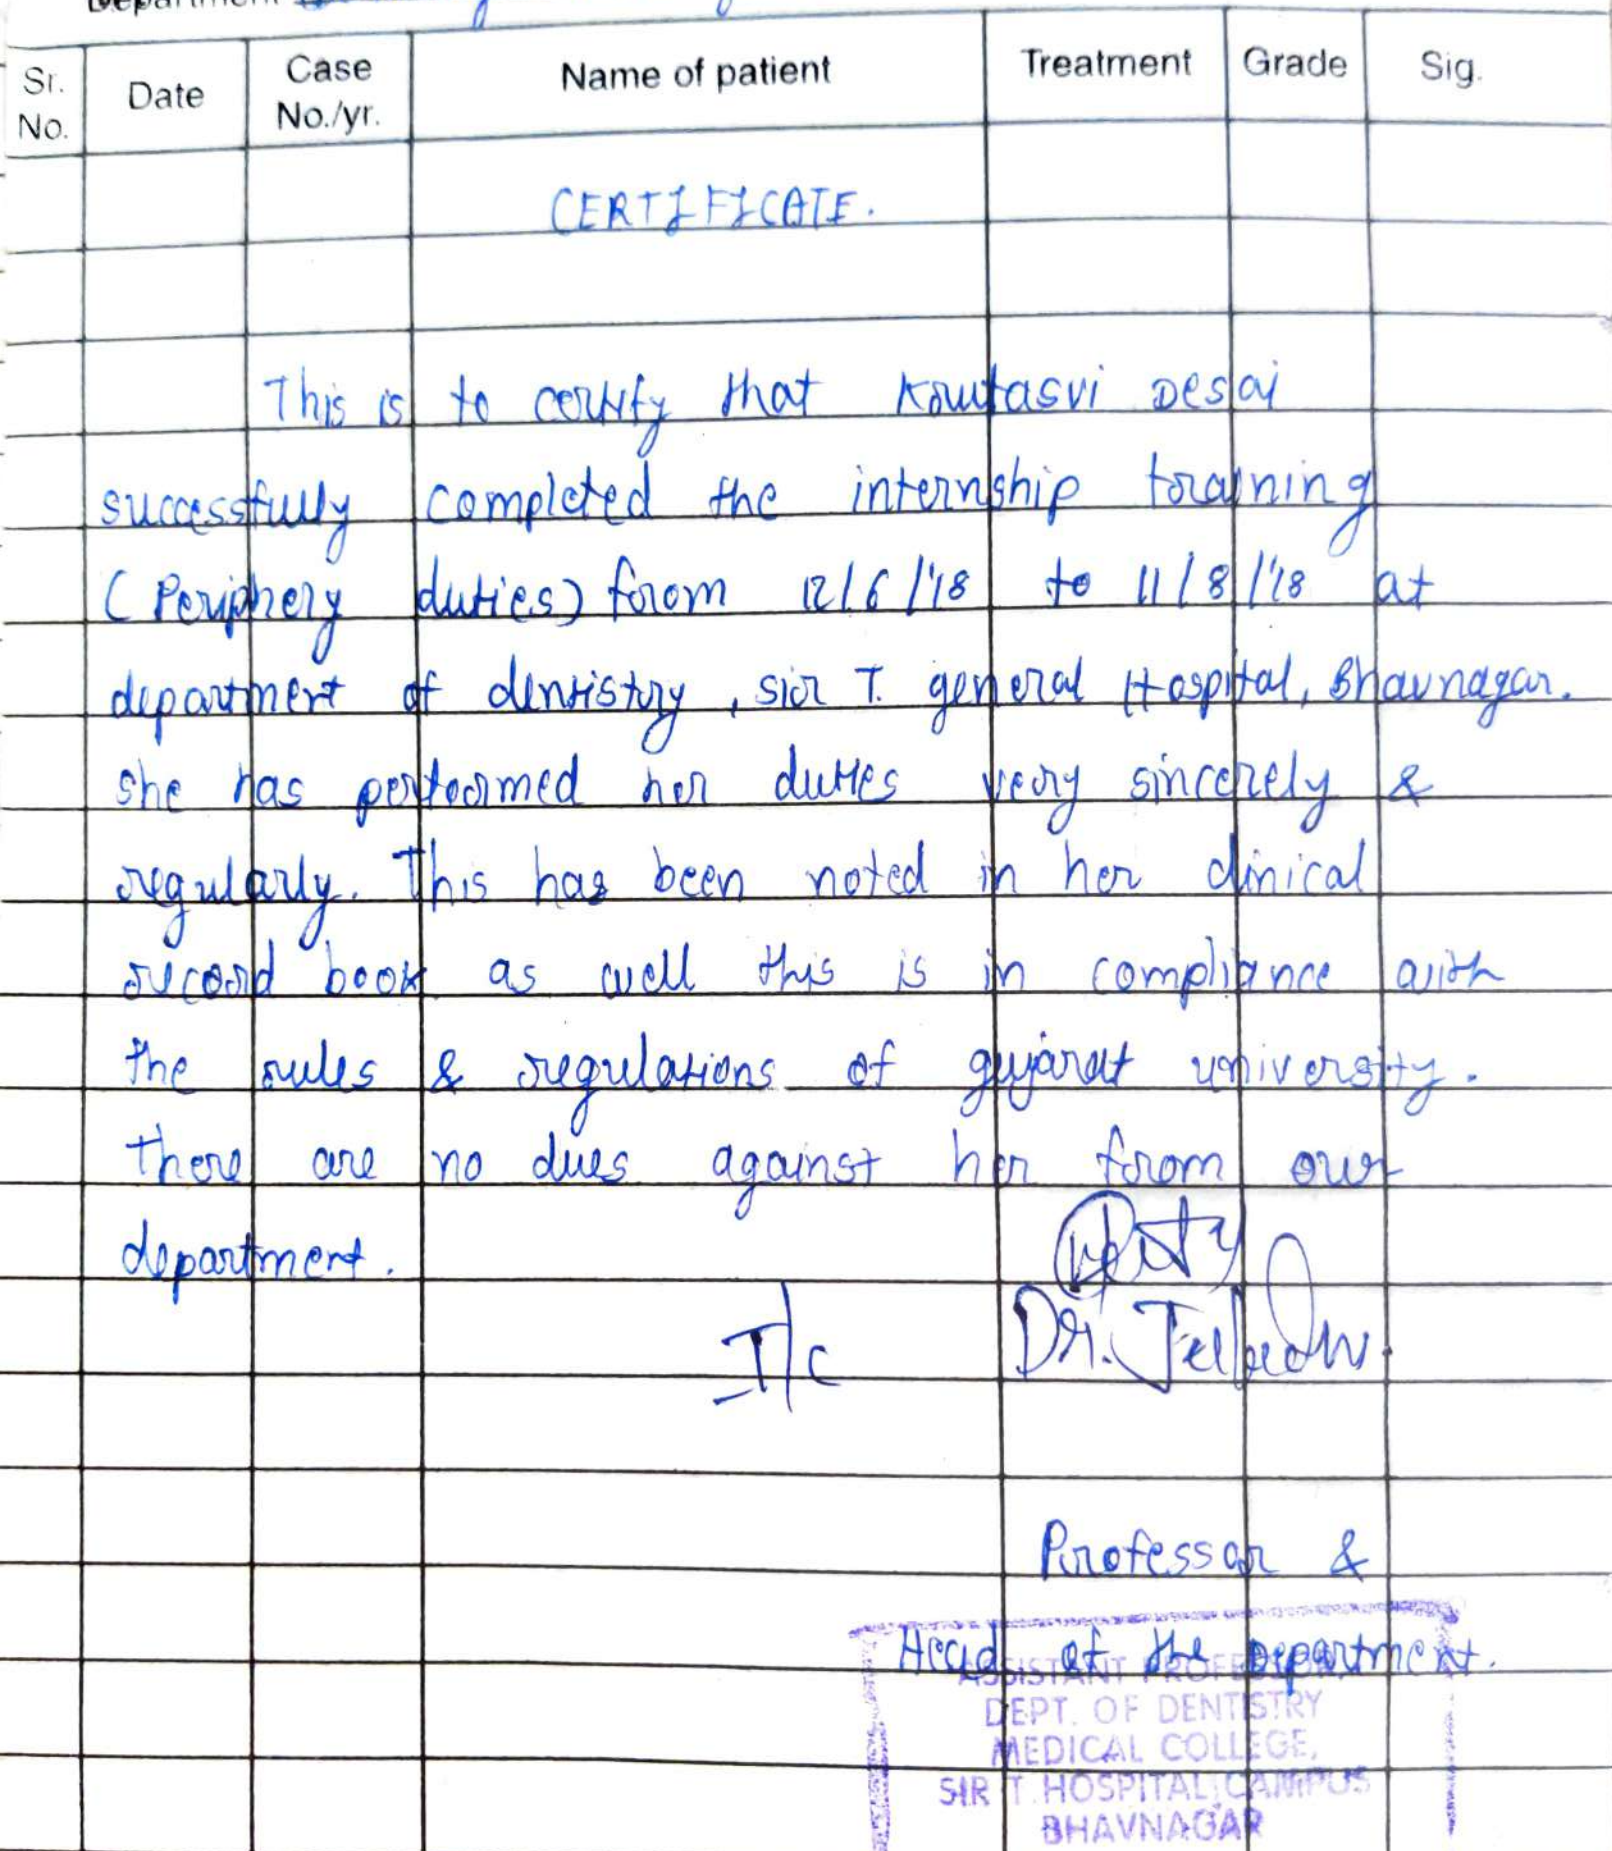 Department
Sr. No. Date Case No./yr. Name of patient Treatment Grade Sig.
CERTIFICATE.
This is to certify that Krutasvi Desai
successfully completed the internship training
(Periphery duties) from 12/6/'18 to 11/8/'18 at
department of dentistry, sir T. general Hospital, Bhavnagar.
she has performed her duties very sincerely &
regularly. This has been noted in her clinical
record book as well this is in compliance with
the rules & regulations of gujarat university.
there are no dues against her from our
department.
I/c Dr.
Professor &
Head of the Department.
ASSISTANT PROFESSOR
DEPT. OF DENTISTRY
MEDICAL COLLEGE,
SIR T. HOSPITAL CAMPUS
BHAVNAGAR